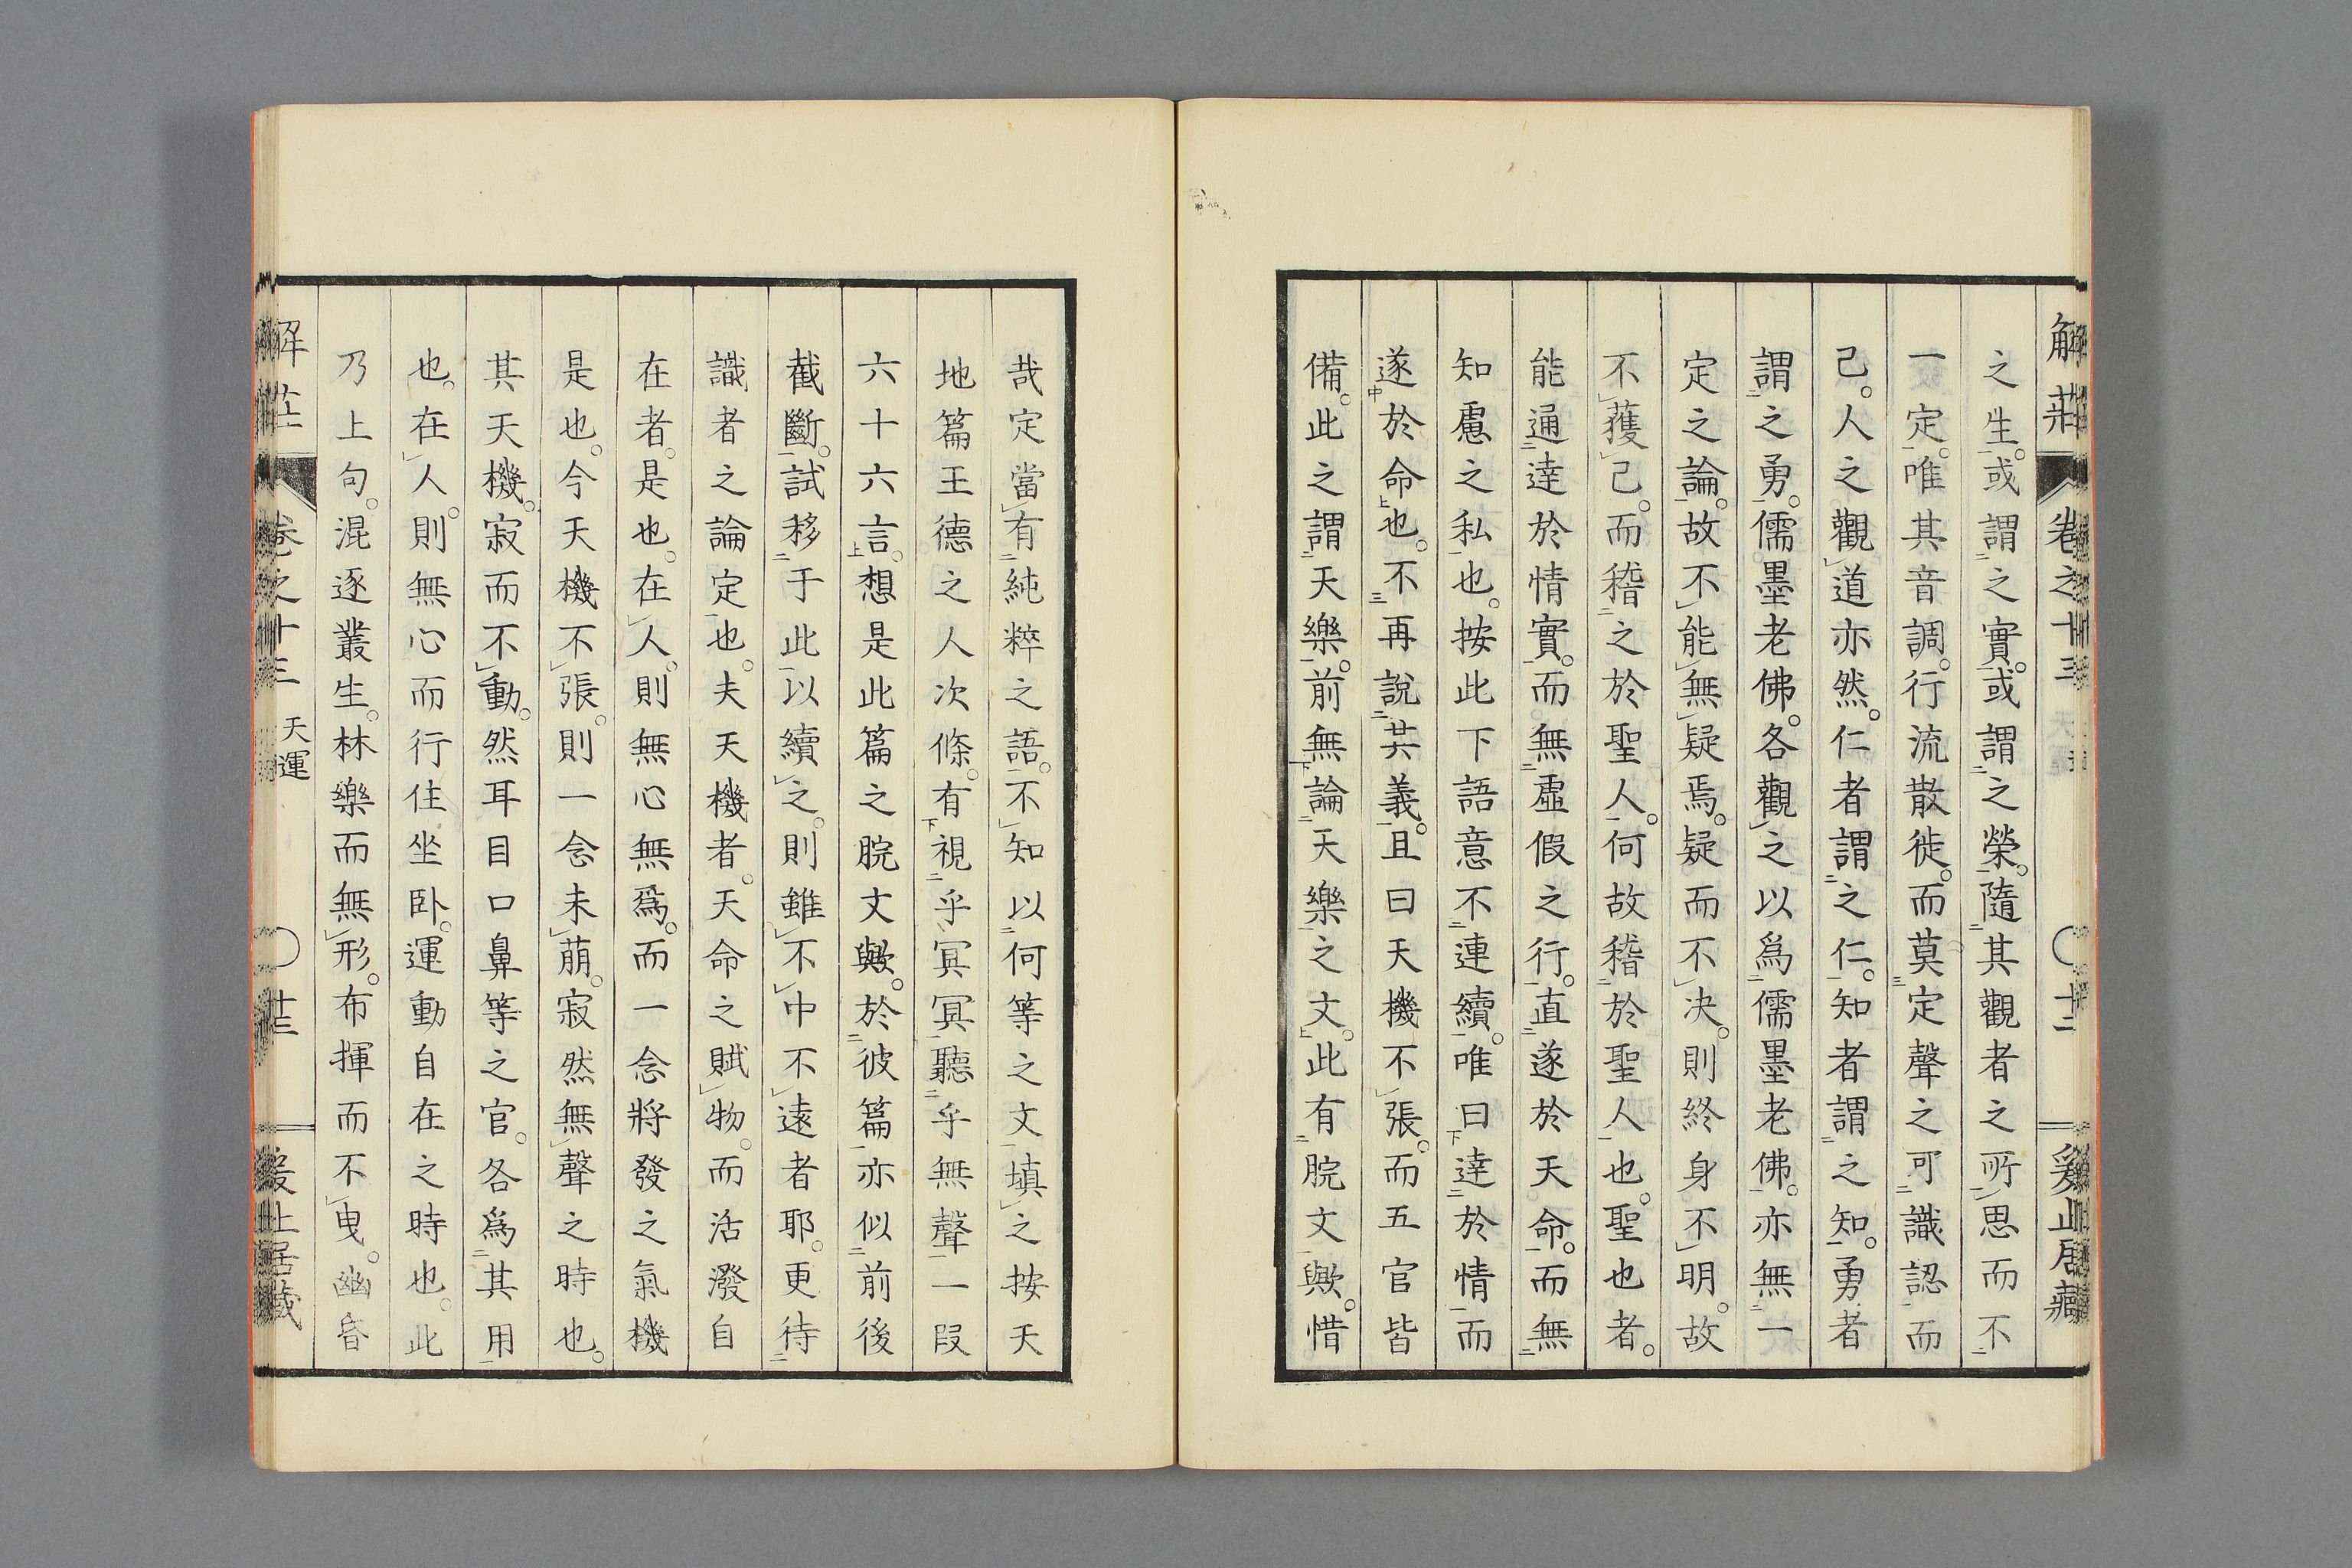 解莊 卷之十三 十二 奚止居藏
之生。或謂之實。或謂之榮。隨其觀者之所思而不
一定。唯其音調。行流散徙。而莫定聲之可識認而
己。人之觀道亦然。仁者謂之仁。知者謂之知。勇者
謂之勇。儒墨老佛。各觀之以爲儒墨老佛。亦無一
定之論。故不能無疑焉。疑而不决。則終身不明。故
不獲己。而稽之於聖人。何故稽於聖人也。聖也者。
能通達於情實。而無虛假之行。直遂於天命。而無
知慮之私也。按此下語意不連續。唯曰達於情而
遂於命也。不再說其義。且曰天機不張。而五官皆
備。此之謂天樂。前無論天樂之文。此有脘文歟。惜
哉定當有純粹之語。不知以何等之文填之按天
地篇王德之人次條。有視乎冥冥聽乎無聲一段
六十六言。想是此篇之脘文歟。於彼篇亦似前後
截斷。試移于此以續之。則雖不中不遠者耶。更待
識者之論定也。夫天機者。天命之賦物。而活潑自
在者。是也。在人。則無心無爲。而一念將發之氣機
是也。今天機不張。則一念未萠。寂然無聲之時也。
其天機。寂而不動。然耳目口鼻等之官。各爲其用
也。在人。則無心而行住坐卧。運動自在之時也。此
乃上句。混逐叢生。林樂而無形。布揮而不曳。幽昏
解莊 卷之十三 天運 十三 奚止居藏